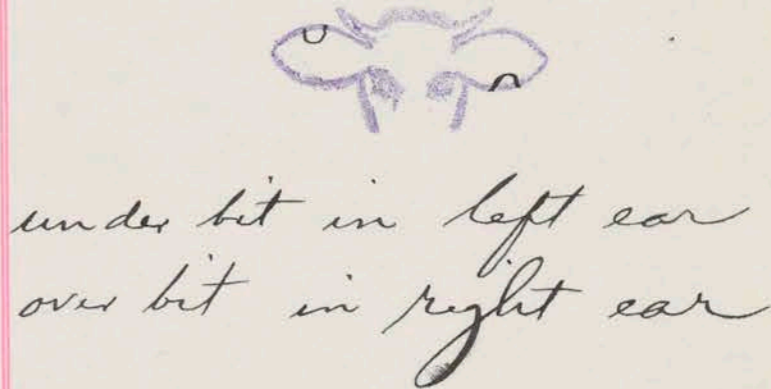 under bit in left ear
over bit in right ear